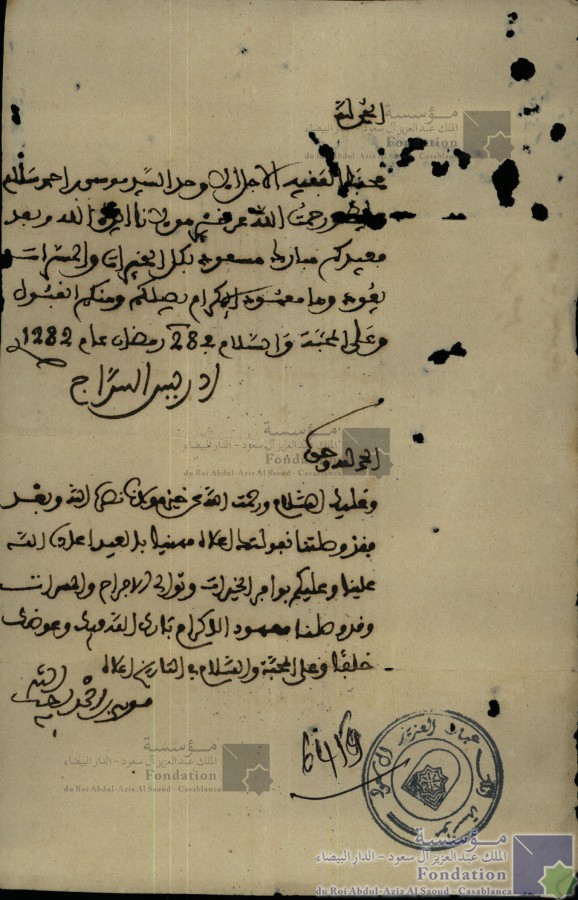 الحمد لله
محبنا الفقيه الأجل الأوحد السيد موسى بن احمد سلام
عليكم ورحمت الله عن خير مولانا ايده الله وبعد
فعيدكم مبارك مسعود بكل الخيرات والمسرات
يعود وما معهود الإكرام يصلكم ومنكم القبول
وعلى المحبة والسلام في 28 رمضان عام 1282
ادريس السراج
الحمد لله وحده
وعليك السلام ورحمت الله عن خير مولانا نصره الله وبعد
فقد وصلتنا مهنيا بالعيد اعاده الله
علينا وعليكم بوافر الخيرات وتوالي الافراح والمسرات
وقد وصلنا معهود الاكرام بارك الله فيك وعوضك
خلفا وعلى المحبة والسلام في التاريخ اعلاه
موسى بن احمد لطف الله به
مؤسسة
الملك عبد العزيز آل سعود - الدار البيضاء
Fondation
du Roi Abdul-Aziz Al Saoud - Casablanca